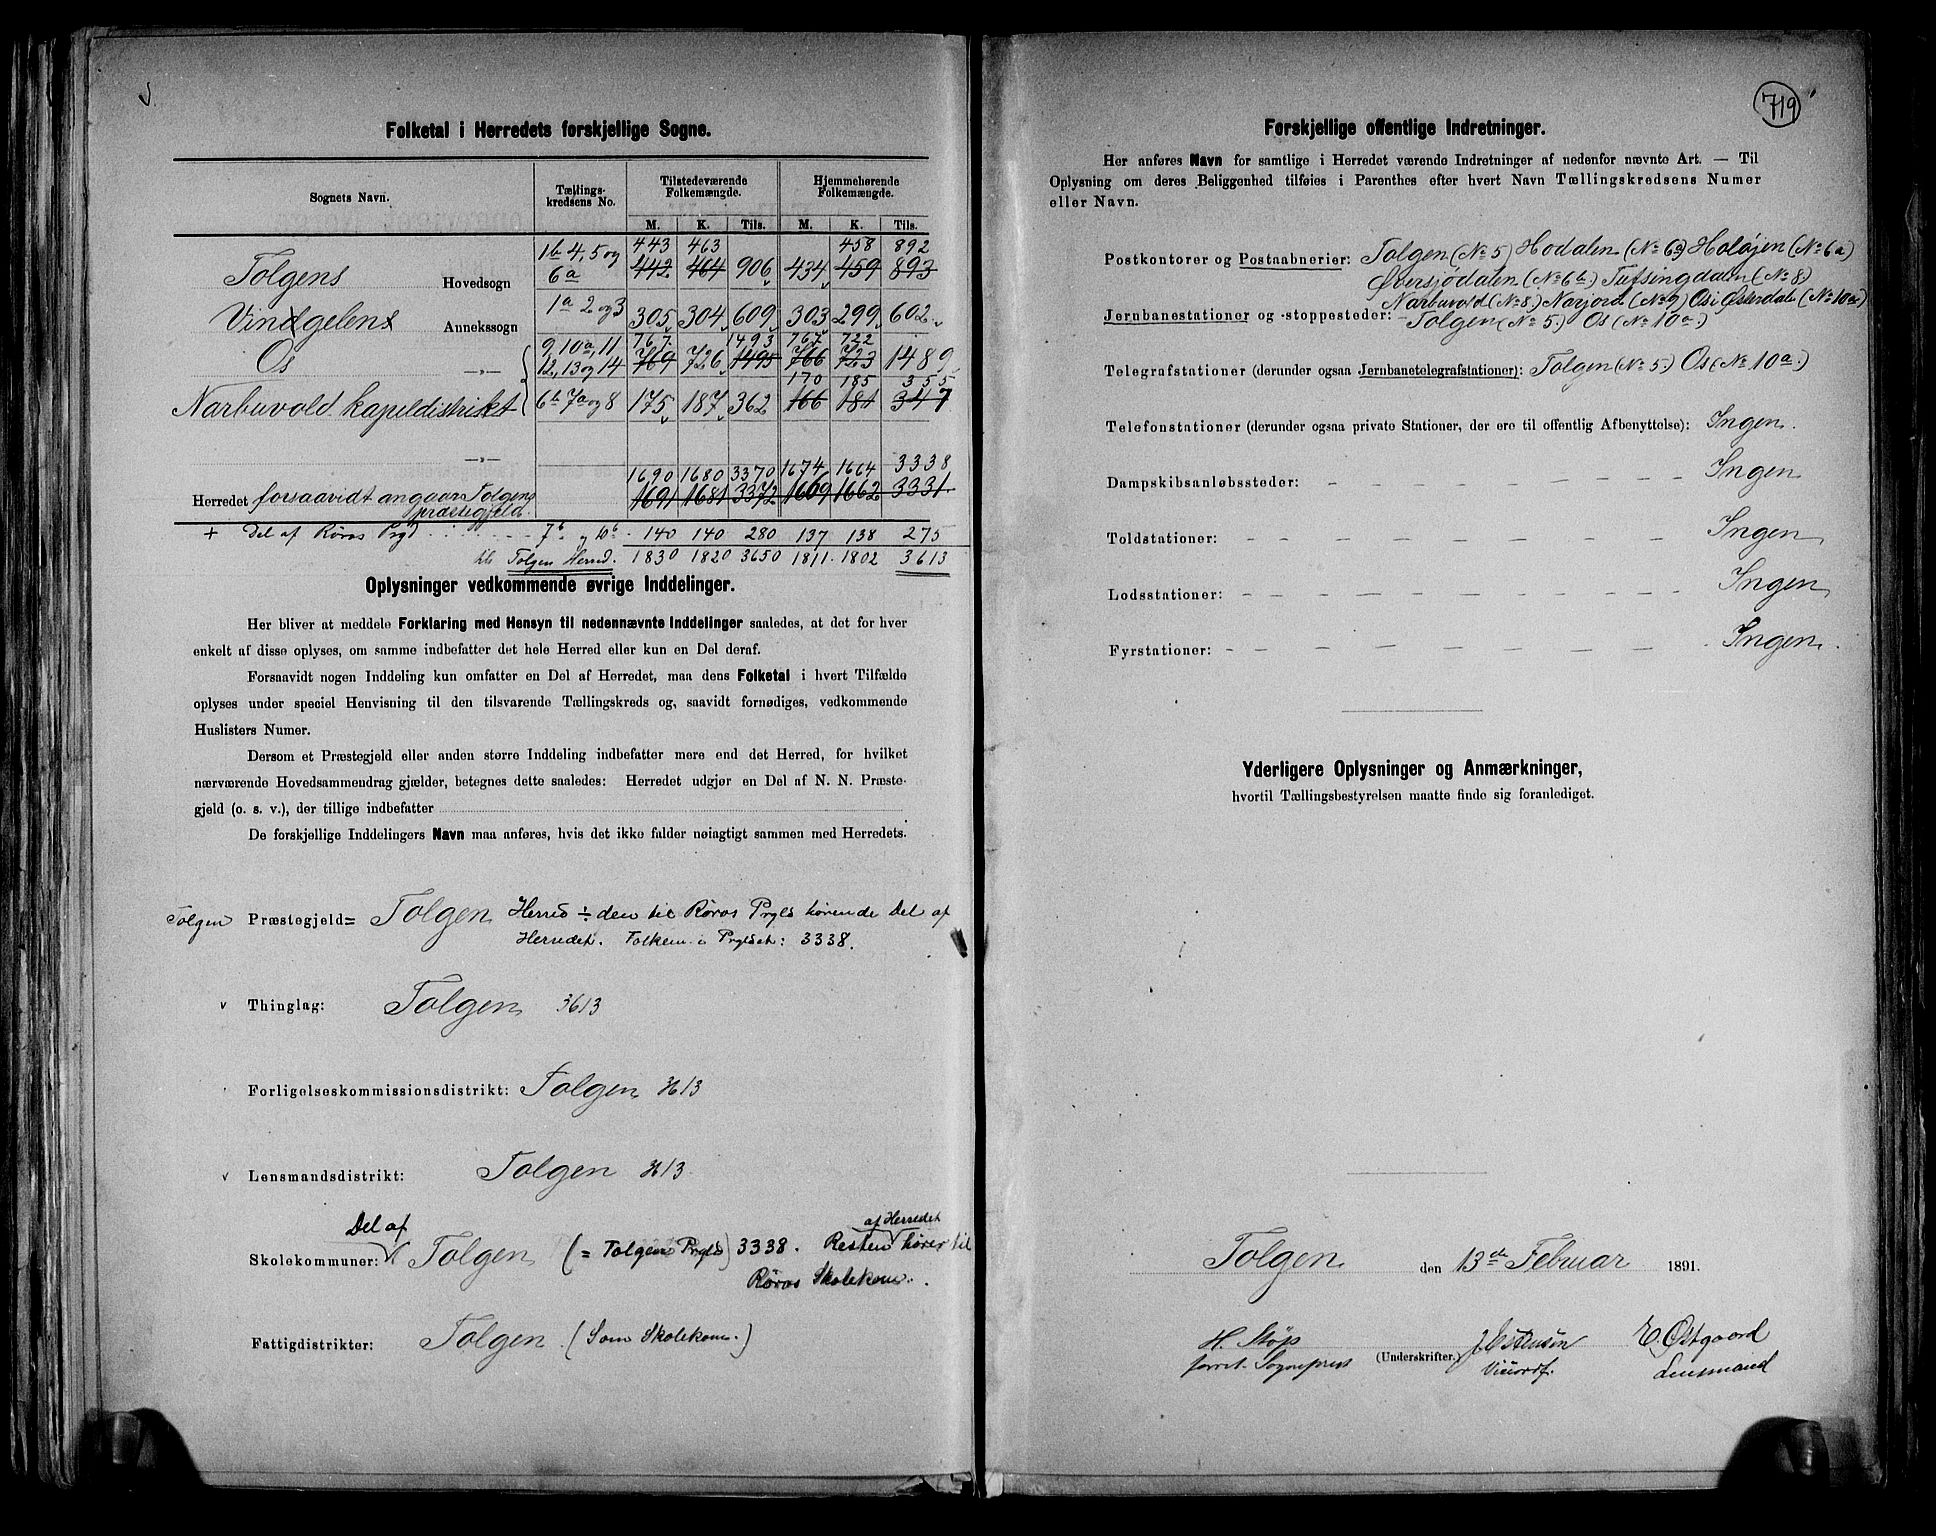 Folketal i Herredets forskjellige Sogne.
Sognets Navn. Tællings-kredsens No. Tilstedeværende Folkemængde. Hjemmehørende Folkemængde.
M. K. Tils. M. K. Tils.
443 463 458 892
Tolgens Hovedsogn 1b 4, 5 og 6a 442 464 906 434 459 893
Vindgelens Annekssogn 1a 2 og 3 305 304 609 303 299 602
767 1493 767 722
Os —„— 9, 10a, 11 12, 13 og 14 769 726 1495 766 723 1489
170 185 355
Narbuvold kapeldistrikt 6b 7a og 8 175 187 362 166 181 347
—„—
1690 1680 3370 1674 1664 3338
Herredet forsaavidt angaar Tolgens præstegjeld. 1691 1681 3372 1669 1662 3331
+ Del af Røros Prgd 7b og 10b 140 140 280 137 138 275
Tolgen Herred. 1830 1820 3650 1811 1802 3613
Oplysninger vedkommende øvrige Inddelinger.
Her bliver at meddele Forklaring med Hensyn til nedennævnte Inddelinger saaledes, at det for hver
enkelt af disse oplyses, om samme indbefatter det hele Herred eller kun en Del deraf.
Forsaavidt nogen Inddeling kun omfatter en Del af Herredet, maa dens Folketal i hvert Tilfælde
oplyses under speciel Henvisning til den tilsvarende Tællingskreds og, saavidt fornødiges, vedkommende
Huslisters Numer.
Dersom et Præstegjeld eller anden større Inddeling indbefatter mere end det Herred, for hvilket
nærværende Hovedsammendrag gjælder, betegnes dette saaledes: Herredet udgjør en Del af N. N. Præste-
gjeld (o. s. v.), der tillige indbefatter
De forskjellige Inddelingers Navn maa anføres, hvis det ikke falder nøiagtigt sammen med Herredets.
Tolgen Præstegjeld = Tolgen Herred ÷ den til Røros Prgld hørende Del af
Herredet. Folkem. i Prgldet: 3338.
v Thinglag: Tolgen 3613
Forligelseskommissionsdistrikt: Tolgen 3613
v Lensmandsdistrikt: Tolgen 3613
Del af af Herredet
Skolekommuner: Tolgen (= Tolgen Prgld) 3338. Resten hører til
Røros Skolekom.
Fattigdistrikter: Tolgen (Som Skolekom.)
719
Forskjellige offentlige Indretninger.
Her anføres Navn for samtlige i Herredet værende Indretninger af nedenfor nævnte Art. — Til
Oplysning om deres Beliggenhed tilføies i Parenthes efter hvert Navn Tællingskredsens Numer
eller Navn.
Postkontorer og Postaabnerier: Tolgen (No 5) Hodalen (No 6a) Holøjen (No 6a)
Øversjødalen (No 6b) Tufsingdalen (No 8)
Narbuvold (No 8) Narjord (No 9) Os i Østerdalen (No 10a)
Jernbanestationer og -stoppesteder: Tolgen (No 5.) Os (No 10a.)
Telegrafstationer (derunder ogsaa Jernbanetelegrafstationer): Tolgen (No 5.) Os (No 10a.)
Telefonstationer (derunder ogsaa private Stationer, der ere til offentlig Afbenyttelse): Ingen.
Dampskibsanløbssteder: Ingen
Toldstationer: Ingen
Lodsstationer: Ingen
Fyrstationer: Ingen.
Yderligere Oplysninger og Anmærkninger,
hvortil Tællingsbestyrelsen maatte finde sig foranlediget.
Tolgen den 13de Februar 1891.
H. Støp E. Østgaard
Sogneprest (Underskrifter.) Viceordf. Lensmand